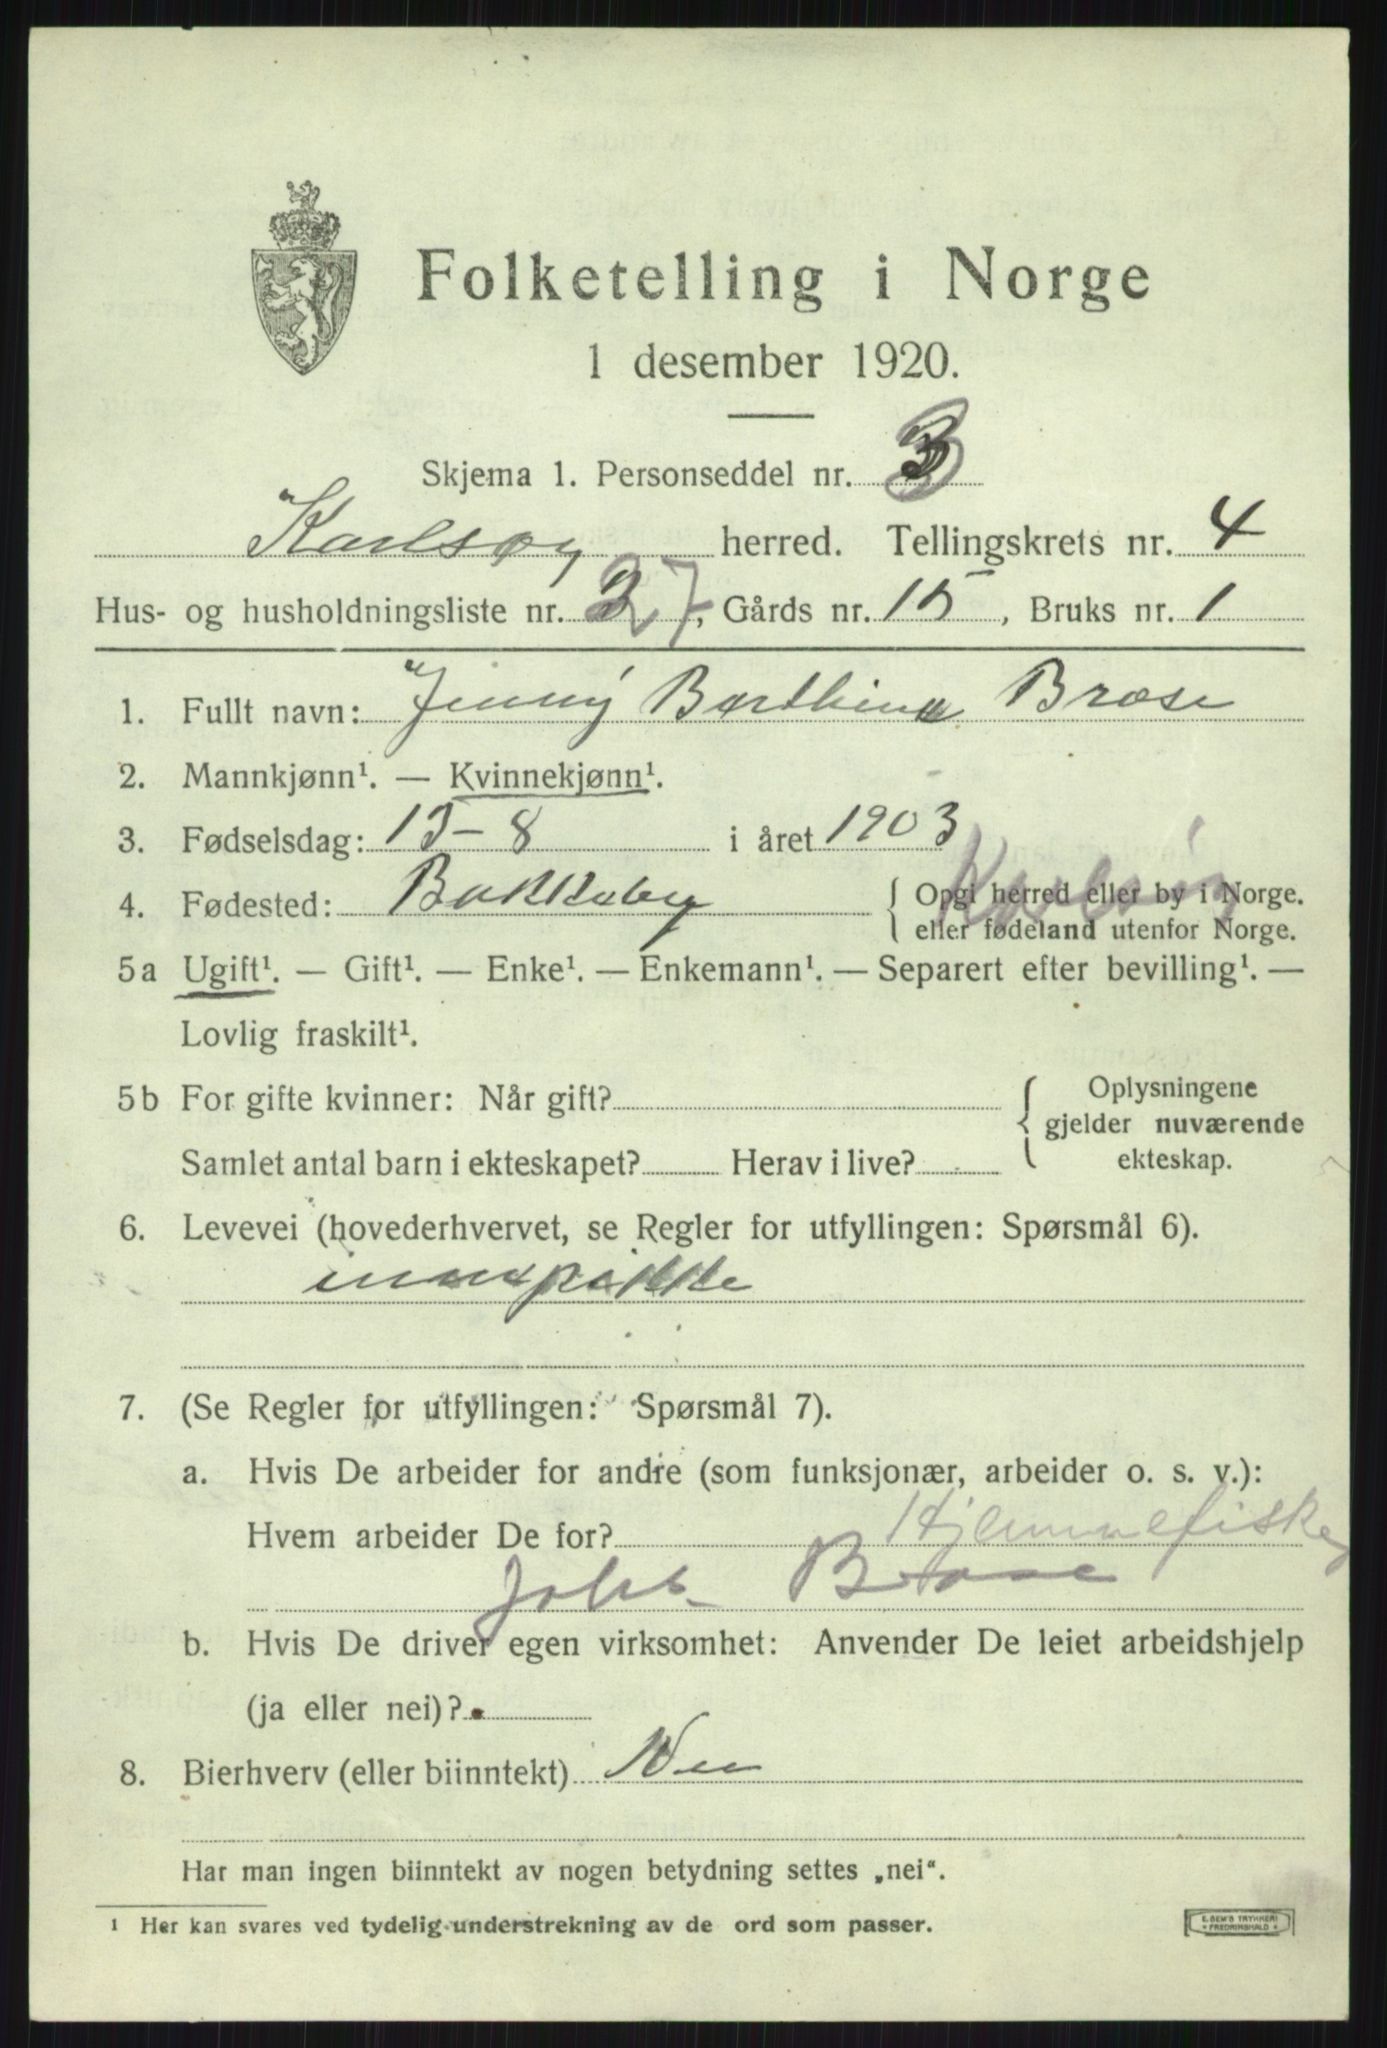 Folketelling i Norge
1 desember 1920.
Skjema 1. Personseddel nr. 3
Karlsøy herred. Tellingskrets nr. 4
Hus- og husholdningsliste nr. 27, Gårds nr. 15, Bruks nr. 1
1. Fullt navn: Jenny Barthine Brose
2. Mannkjønn¹. — Kvinnekjønn¹.
3. Fødselsdag: 15-8 i året 1903
4. Fødested: Bakkaby { Opgi herred eller by i Norge.
Karlsøy
eller fødeland utenfor Norge.
5a Ugift¹. — Gift¹. — Enke¹. — Enkemann¹. — Separert efter bevilling¹. —
Lovlig fraskilt¹.
5b For gifte kvinner: Når gift? { Oplysningene
gjelder nuværende
Samlet antal barn i ekteskapet? Herav i live? ekteskap.
6. Levevei (hovederhvervet, se Regler for utfyllingen: Spørsmål 6).
innepikke
7. (Se Regler for utfyllingen: Spørsmål 7).
a. Hvis De arbeider for andre (som funksjonær, arbeider o. s. v.):
Hvem arbeider De for? Hjemmefisker
Johs Brose
b. Hvis De driver egen virksomhet: Anvender De leiet arbeidshjelp
(ja eller nei)?
8. Bierhverv (eller biinntekt) Nei
Har man ingen biinntekt av nogen betydning settes „nei“.
¹ Her kan svares ved tydelig understrekning av de ord som passer.
E. SEM'S TRYKKERI
FREDRIKSHALD